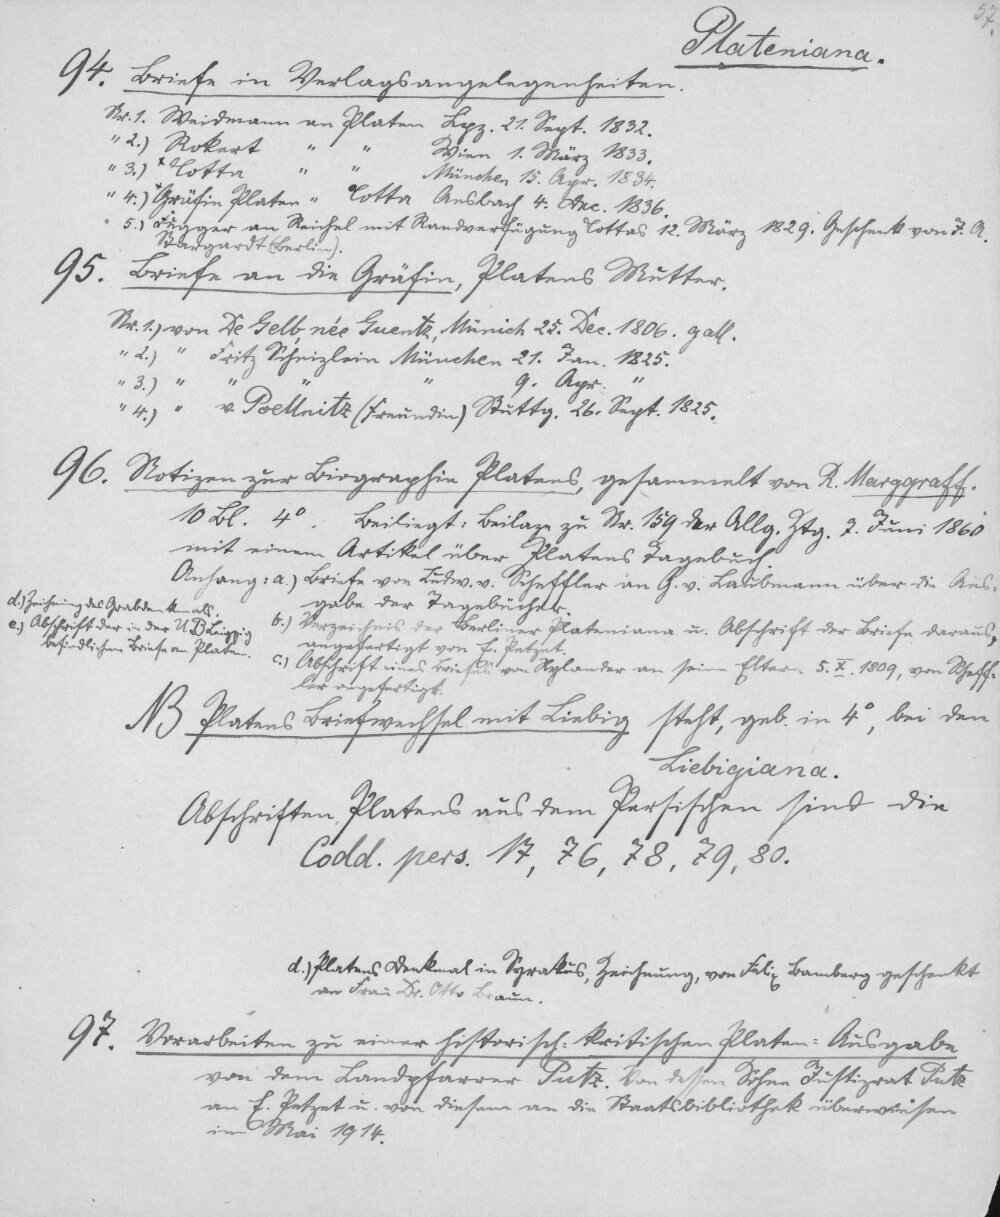 57.
Plateniana.
94. Briefe in Verlagsangelegenheiten.
Nr. 1. Weidmann an Platen Lpz. 21. Sept. 1832.
" 2.) Rokert " " Wien 1. März 1833.
" 3.) Cotta " " München 15. Apr. 1834.
" 4.) Gräfin Platen " Cotta Ansbach 4. Dec. 1836.
" 5.) Fugger an Reichel mit Randverfügung Cottas 12. März 1829. Geschenk von J. A.
Stargardt (Berlin).
95. Briefe an die Gräfin, Platens Mutter.
Nr. 1.) von De Gelb, née Guentz, Münich 25. Dec. 1806. gall.
" 2.) " Fritz Schnizlein München 21. Jan. 1825.
" 3.) " " " " 9. Apr. "
" 4.) " v. Poellnitz (Freundin) Stuttg. 26. Sept. 1825.
96. Notizen zur Biographie Platens, gesammelt von R. Marggraff.
10 Bl. 4°. Beiliegt: Beilage zu Nr. 159 der Allg. Ztg. 7. Juni 1860
mit einem Artikel über Platens Tagebuch.
Anhang: a.) Briefe von Ludw. v. Scheffler an G. v. Laubmann über die Aus-
gabe der Tagebücher.
b.) Verzeichnis der Berliner Plateniana u. Abschrift der Briefe daraus,
angefertigt von E. Petzet.
c.) Abschrift eines Briefes von Xylander an seine Eltern 5. X. 1809, von Scheff-
ler angefertigt.
d.) Zeichnung des Grabdenkmals.
e.) Abschrift der in der UB Leipzig
befindlichen Briefe an Platen.
NB Platens Briefwechsel mit Liebig steht, geb. in 4°, bei den
Liebigiana.
Abschriften Platens aus dem Persischen sind die
Codd. pers. 17, 76, 78, 79, 80.
d.) Platens Denkmal in Syrakus, Zeichnung, von Felix Bamberg geschenkt
an Frau Dr. Otto Braun.
97. Vorarbeiten zu einer historisch-kritischen Platen-Ausgabe
von dem Landpfarrer Putz. Von dessen Sohne Justizrat Putz
an E. Petzet u. von diesem an die Staatsbibliothek überwiesen
im Mai 1914.